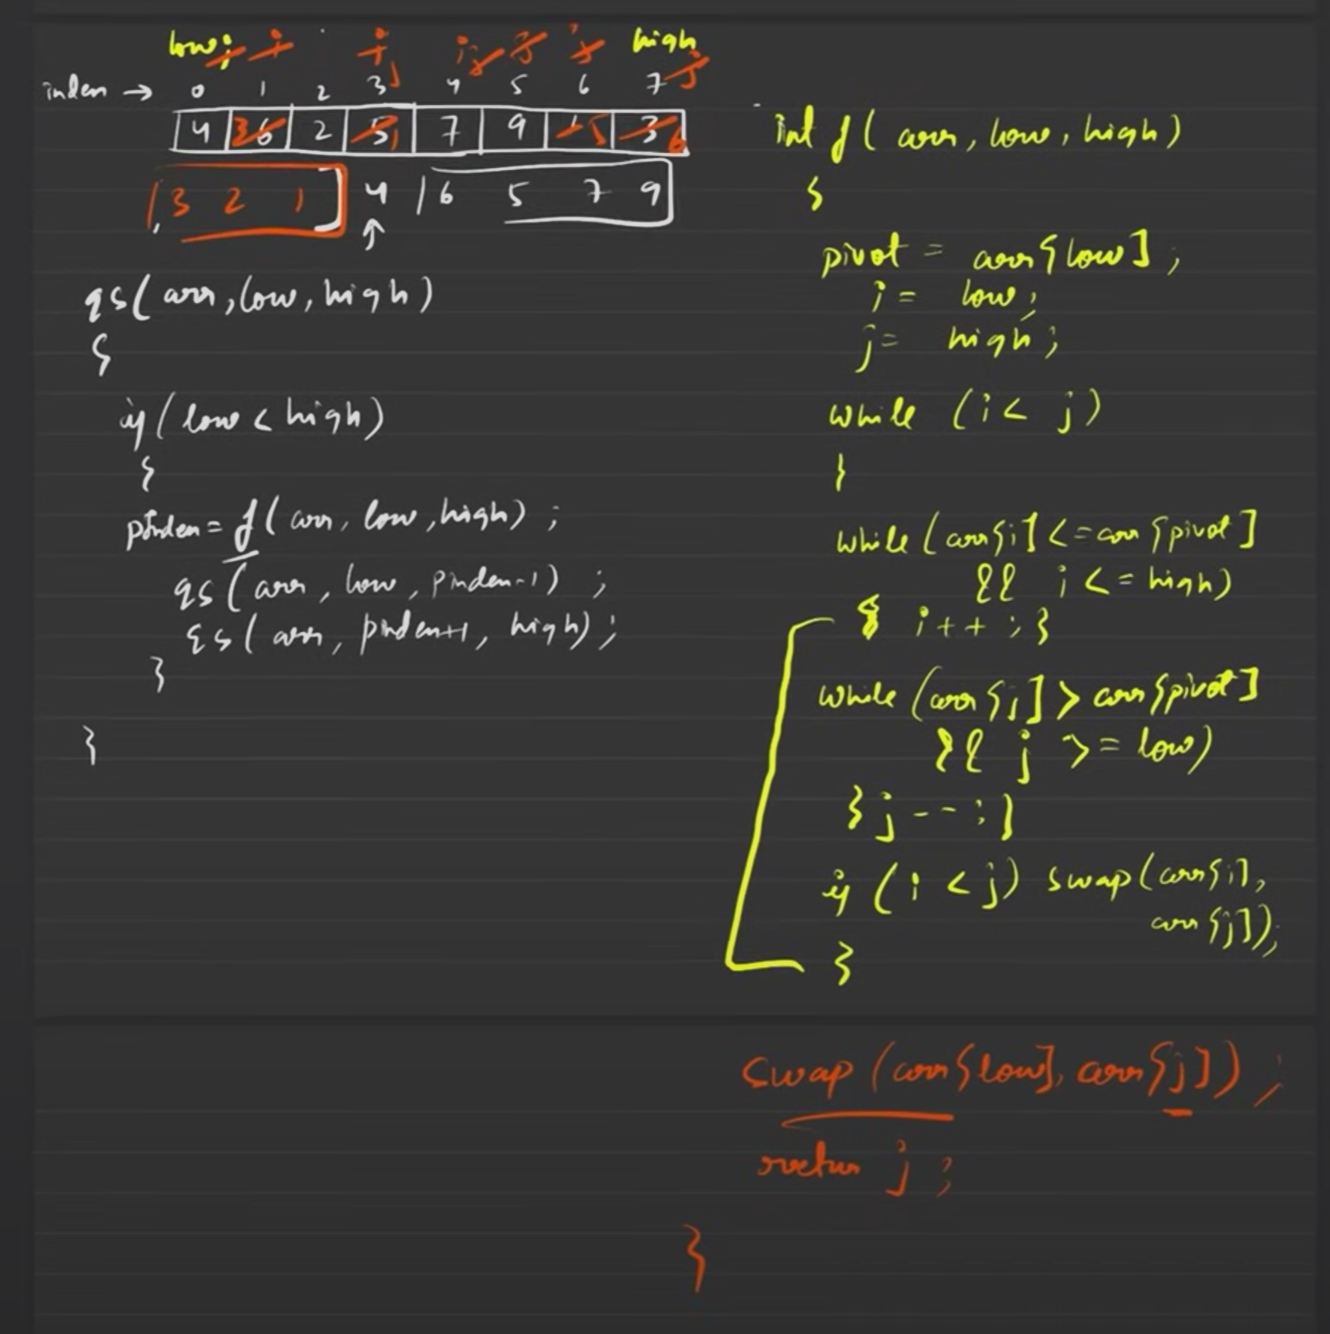 low i i i i j j j high j
index → 0 1 2 3 j 4 5 6 7
4 3 6 2 5 1 7 9 1 5 3 6
[3 2 1] 4 | 6 5 7 9
↑
qs(arr, low, high)
{
if(low < high)
{
pIndex = f(arr, low, high) ;
qs(arr, low, pIndex-1) ;
qs(arr, pIndex+1, high) ;
}
}
int f( arr, low, high)
{
pivot = arr[low] ;
i = low ;
j = high ;
while (i < j)
{
while (arr[i] <= arr[pivot]
&& i <= high)
{ i++ ; }
while (arr[j] > arr[pivot]
&& j >= low)
{ j-- ; }
if (i < j) swap(arr[i],
arr[j]);
}
swap (arr[low], arr[j]) ;
return j ;
}